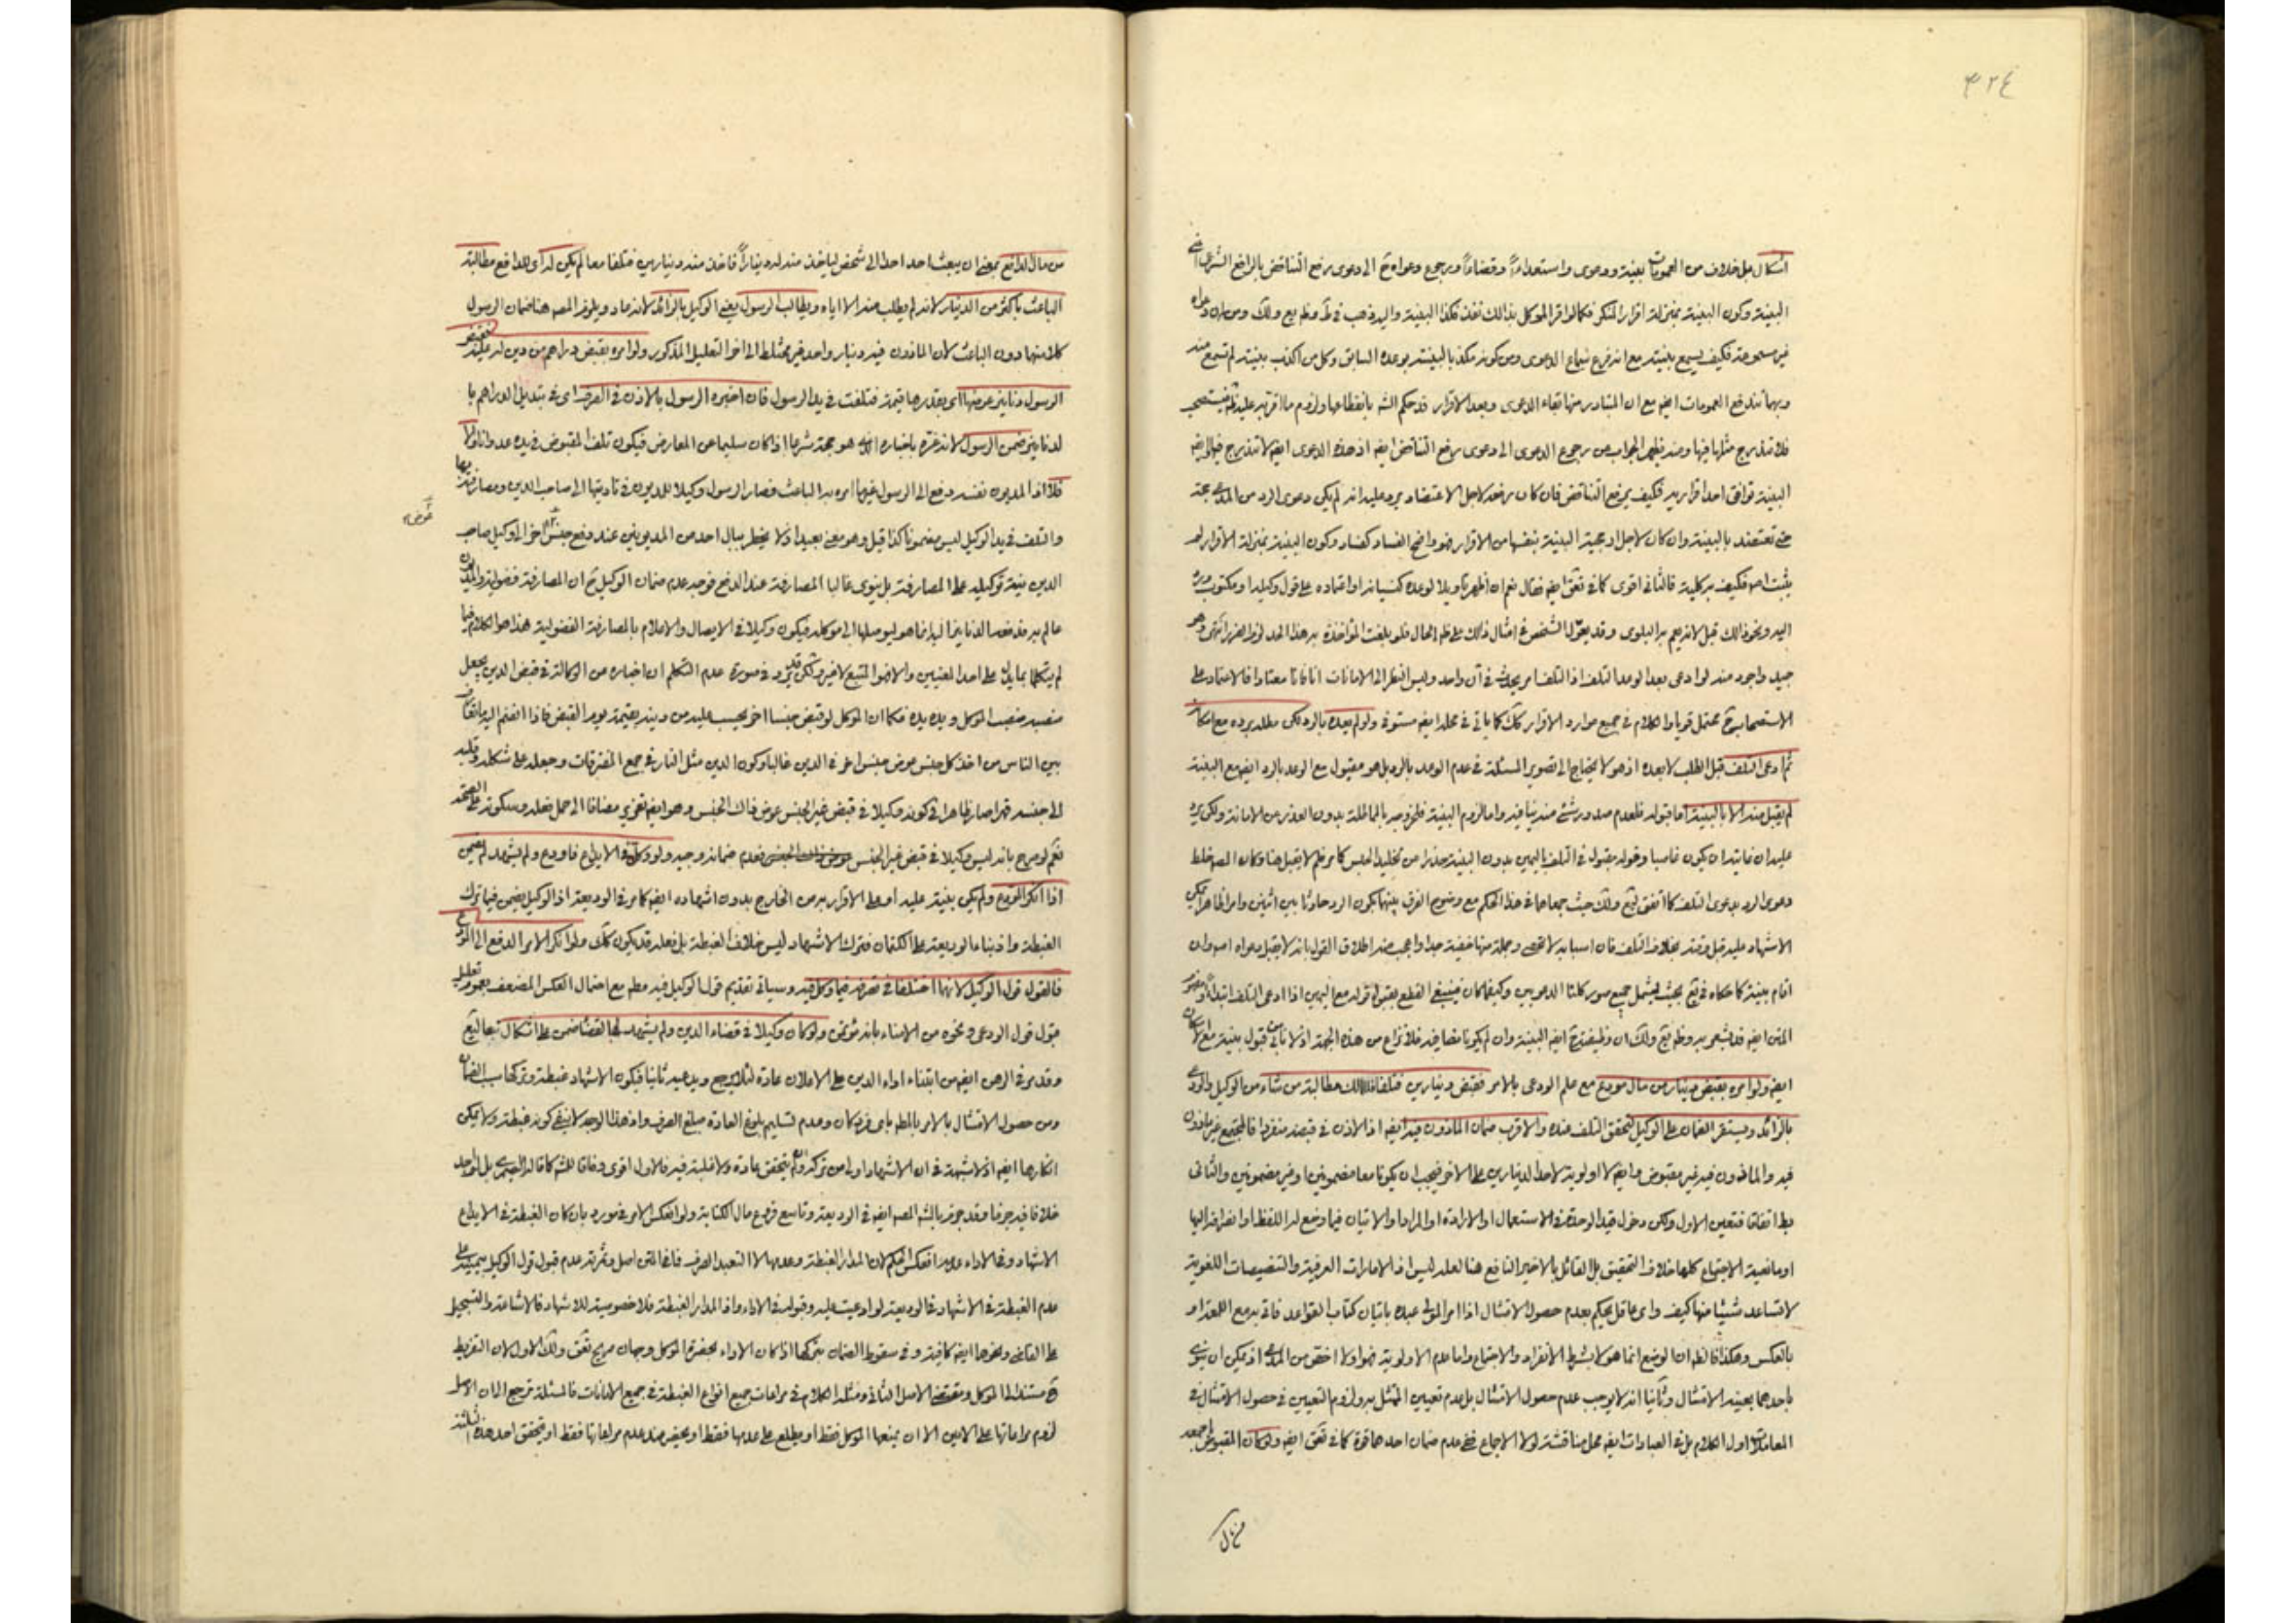 ٣٢٤
اشكال بل خلاف من العمومات بينة ودعوى واستعداماً وقضاءاً ورجوع دعواه ثم الى دعوى رفع التناقض بالرافع الشرعى
البينة وكون البينة بمنزلة اقرار المنكر فكما لو اقر الموكل بذالك نفذ فكذا البينة واليه ذهب فى
غير مسموعة فكيف يسمع بينته مع انه فرع سماع الدعوى ومن كونه مكذبا لبينته بوعده السابق وكل من اكذب بينته لم تسمع منه
وبها تندفع العمومات ايضه مع ان المتبادر منها بقاء الدعوى وبعد الاقرار قد حكم الشه بانقطاعها ولزوم ما اقر به عليه
فلا تندرج مثلها فيها ومنه يظهر الجواب من رجوع الدعوى الى دعوى رفع التناقض ايضه اذ هذه الدعوى ايضه لا تندرج
البينة توافق احد اقراريه فكيف يرفع التناقض فان كان رفعه لاجل الاعتضاد يرد عليه انه لم يكن دعوى الرد من المدعى حجة
حتى تعتضد بالبينة وان كان لاجل ارجحية البينة بنفسها من الاقرار فهو واضح الفساد كفساد كون البينة بمنزلة الاقرار
يثبت اصه فكيف بركلية فالثانى اقوى كما فى تعق ايضه فقال نعم ان اظهر تاويلا لوعده كنسيانه او اعتماده على قول وكيله او مكتوب
اليه ونحو ذالك قبل لانه يعم به البلوى وقد يعول الشخص فى امثال ذالك على ظم الحال فلو بلغت المؤاخذة به هذا الحد لزم الضرر انتهى وهو
جيد واجود منه لو ادعى بعد الوعد التلف اذ التلف امر يحدث فى آن واحد وليس النظر الى الامانات انافانا معتادا فالاعتماد على
الاستصحاب محتمل قويا والكلام فى جميع موارد الاقرار كك كما ياتى فى محله ايضه مستوفى ولو لم يعده بالرد لكن مطله برده مع امكانه
ثم ادعى التلف قبل الطلب لا بعده اذ هو لا يحتاج الى تصوير المسئلة فى عدم الوعد بالرد بل هو مقبول مع الوعد بالرد ايضه مع البينة
لم يقبل منه الا بالبينة اما قبوله فلعدم صدور شئ منه ينافيه واما لزوم البينة فلخروجه بالمماطلة بدون العذر من الامانة ولكن يرد
عليه ان غايته ان يكون غاصبا وقوله مقبول فى التلف باليمين بدون البينة حذرا من تخليد الحبس كما مر فلم لا يقبل هنا وكان المصه خلط
دعوى الرد بدعوى التلف كما اتفق ولك حيث جمعاهما فى هذا الحكم مع وضوح الفرق بينهما بكون الرد حادثا بين اثنين وامرا ظاهرا يمكن
الاشهاد عليه قبل وقته بخلاف التلف فان اسبابه لا تحصى وجملة منها خفية جدا واعجب منه اطلاق القول بانه لا يقبل دعواه اصه وان
اقام بينة كما حكاه فى تع بحيث يشمل جميع صور كلتا الدعويين وكيفما كان فينبغى القطع بقبول قوله مع اليمين اذا ادعى التلف ابتداءً
المتن ايضه قد يشعر به وظم تع ولك ان وظيفته ح ايضه البينة وان لم يكونا متضايقه فلا نزاع من هذه الجهة اذ لا نابى قبول بينته
ايضه ولو امره بقبض دينار من مال مودع مع علم الودعى بالامر فقبض دينارين فتلفا فللمالك مطالبة من شاء من الوكيل والودعى
بالزائد ويستقر الضمان على الوكيل لتحقق التلف عنده والاقرب ضمان الماذون فيه ايضه اذ الاذن فى قبضه منفردا فالمجتمع غير ماذون
فيه والماذون فيه غير مقبوض وايضه لا اولوية لاحد الدينارين على الاخر فيجب ان يكونا معا مضمونين او غير مضمونين والثانى
بط اتفاقا فتعين الاول ولكن دخول قيد الوحدة فى الاستعمال او الارادة او المراد او الاتيان فيما وضع له اللفظ او انصرافه اليها
او مانعية الاجتماع كلها خلاف التحقيق بل القائل بالاخير النافع هنا لعله ليس اذ الامارات العرفية والتنصيصات اللغوية
لا تساعد شيئا منها كيف واى عاقل يحكم بعدم حصول الامتثال اذا امر المولى عبده باتيان كتاب القواعد فاتى به مع اللمعة او
بالعكس وهكذا فالظم ان الوضع انما هو لا بشرط الانفراد والاجتماع واما عدم الاولوية فهو اولا اخص من المدعى اذ يمكن ان ينوى
باحدهما بعينه الامتثال وثانيا انه لا يوجب عدم حصول الامتثال بل عدم تعيين الممتثل به ولزوم التعيين فى حصول الامتثال فى
المعاملات اول الكلام بل فى العبادات ايضه محل مناقشة لولا الاجماع ففى عدم ضمان احدهما قوة كما فى تعق ايضه ولو كان المقبوض
من مال الدافع بمعنى ان يبعث احد احدا الى شخص لياخذ منه له ديناراً فاخذ منه دينارين فتلفا معا لم يكن له اى للدافع مطالبة
الباعث باكثر من الدينار لانه لم يطلب منه الا اياه ويطالب الرسول يعنى الوكيل بالزائد لانه عاد ويلزم المصه هنا ضمان الرسول
كلا منهما دون الباعث لان الماذون فيه دينار واحد غير مختلط الى اخر التعليل المذكور ولو امره بقبض دراهم من دين له عليه
الرسول دنانير عوضها اى بقدرها قيمة فتلفت فى يد الرسول فان اخبره الرسول بالاذن فى الصرف اى فى تبديل الدراهم با
لدنانير ضمن الرسول لانه غره باخباره الذى هو حجة شرعا اذا كان سليما عن المعارض فيكون تلف المقبوض فى يده عدوانا والا
فلا اذ المديون نفسه دفع الى الرسول غير ما امره به الباعث فصار الرسول وكيلا للمديون فى تاديتها الى صاحب الدين ومصارفته بها
والتلف فى يد الوكيل ليس مضمونا كذا قيل وهو معنى بعيد اذ لا يخطر ببال احد من المديونين عند دفع جنس اخر الى وكيل صاحب
عوض
الدين نية توكيله على المصارفة بل ينوى غالبا المصارفة عند الدفع فوجه عدم ضمان الوكيل ح ان المصارفة فضولية والمديون
عالم به قد دفع الدنانير اليه انما هو ليوصلها الى موكله فيكون وكيلا فى الايصال والاعلام بالمصارفة الفضولية هذا هو الكلام فيما
لم يتكلما بما يدل على احد المعنيين والا فهو المتبع لا غير ولكن قد يرد فى صورة عدم التكلم ان اخباره من الوكالة فى قبض الدين يجعل
منصبه منصب الموكل ويده يده فكما ان الموكل لو قبض جنسا اخر يحسب عليه من دينه بقيمته يوم القبض فاذا انضم اليه ما تعارف
بين الناس من اخذ كل جنس عوض جنس اخر فى الدين غالبا وكون الدين مثل النار فى جمع المتفرقات وجعله على شكله وقلبه
الى جنسه قهرا صار ظاهرا فى كونه وكيلا فى قبض غير الجنس عوض ذاك الجنس وهو ايضه تغرير مضافا الى حمل فعله وسكوته على الصحة
نعم لو صرح بانه ليس وكيلا فى قبض غير الجنس فعدم ضمانه وجيه ولو وكله فى الايداع فاودع ولم يشهد لم يضمن
اذا انكر المودع ولم يكن بينة عليه او على الاقرار به من الخارج بدون اشهاده ايضه كما مر فى الوديعة اذ الوكيل يضمن فيما ترك
الغبطة واذ بناء الوديعة على الكتمان فترك الاشهاد ليس خلاف الغبطة بل فعله قد يكون كك ولو انكر الامر الدفع الى المودع
فالقول قول الوكيل لانهما اختلفا فى تصرفه فيما وكل فيه وسياتى تقديم قول الوكيل فيه مطم مع احتمال العكس المضعف بعموم تعليل
قبول قول الودعى ونحوه من الامناء بانه مؤتمن ولو كان وكيلا فى قضاء الدين ولم يشهد بالقضاء ضمن على اشكال تبعا لتع
وقد مر فى الرهن ايضه من ابتناء اداء الدين على الاعلان عادة لئلا يرجع ويدعيه ثانيا فيكون الاشهاد غبطة وتركها سبب الضمان
ومن حصول الامتثال بالامر بالمطم باى فرد كان وعدم تسليم بلوغ العادة مبلغ الصرف واذ هذا الوجه لا ينفى كونه غبطة ولا يمكن
انكارها ايضه اذ لا شبهة فى ان الاشهاد اولى من تركه ولم يتحقق عادة ولا غلبة فيه فالاول اقوى وفاقا للشه كما قاله
خلافا فيه جزما وقد جزم بالشه المصه ايضه فى الوديعة وتاسع فروع مال الكتابة ولو انعكس الامر فى مورد بان كان الغبطة فى الايداع
الاشهاد وفى الاداء عدمه انعكس الحكم لان المدار الغبطة وعدمها لا التعبد الصرف فانها المتن اصل وثمرته عدم قبول قول الوكيل بيمينه على
عدم الغبطة فى الاشهاد فى الوديعة لو ادعيت عليه وقبوله فى الاداء واذ المدار الغبطة فلا خصوصية للاشهاد فالاشاعة والتسجيل
على القاضى ونحوها ايضه كافية وفى سقوط الضمان بتركها اذا كان الاداء بحضرة الموكل وجهان صرح تعق ولك الاول لان التفريط
ح مستند الى الموكل ومقتضى الاصل الثانى ومثله الكلام فى مراعات جميع انواع الغبطة فى جميع الامانات فالمسئلة ترجع الى ان الاصل
لزوم مراعاتها على الامين الا ان يمنعها الموكل فقط او يطلع على عدمها فقط او يحضر عند عدم مراعاتها فقط او يتحقق احد هذه الثلثة